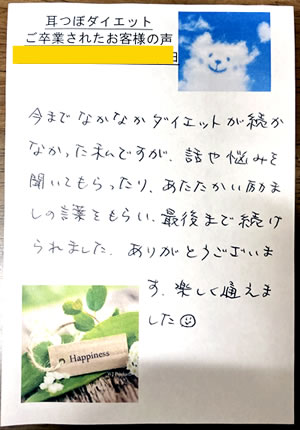 耳つぼダイエット
ご卒業されたお客様の声
日
今までなかなかダイエットが続か
なかった私ですが、話や悩みを
聞いてもらったり、あたたかい励ま
しの言葉をもらい、最後まで続け
られました。ありがとうございま
す。楽しく通えま
した☺
Happiness